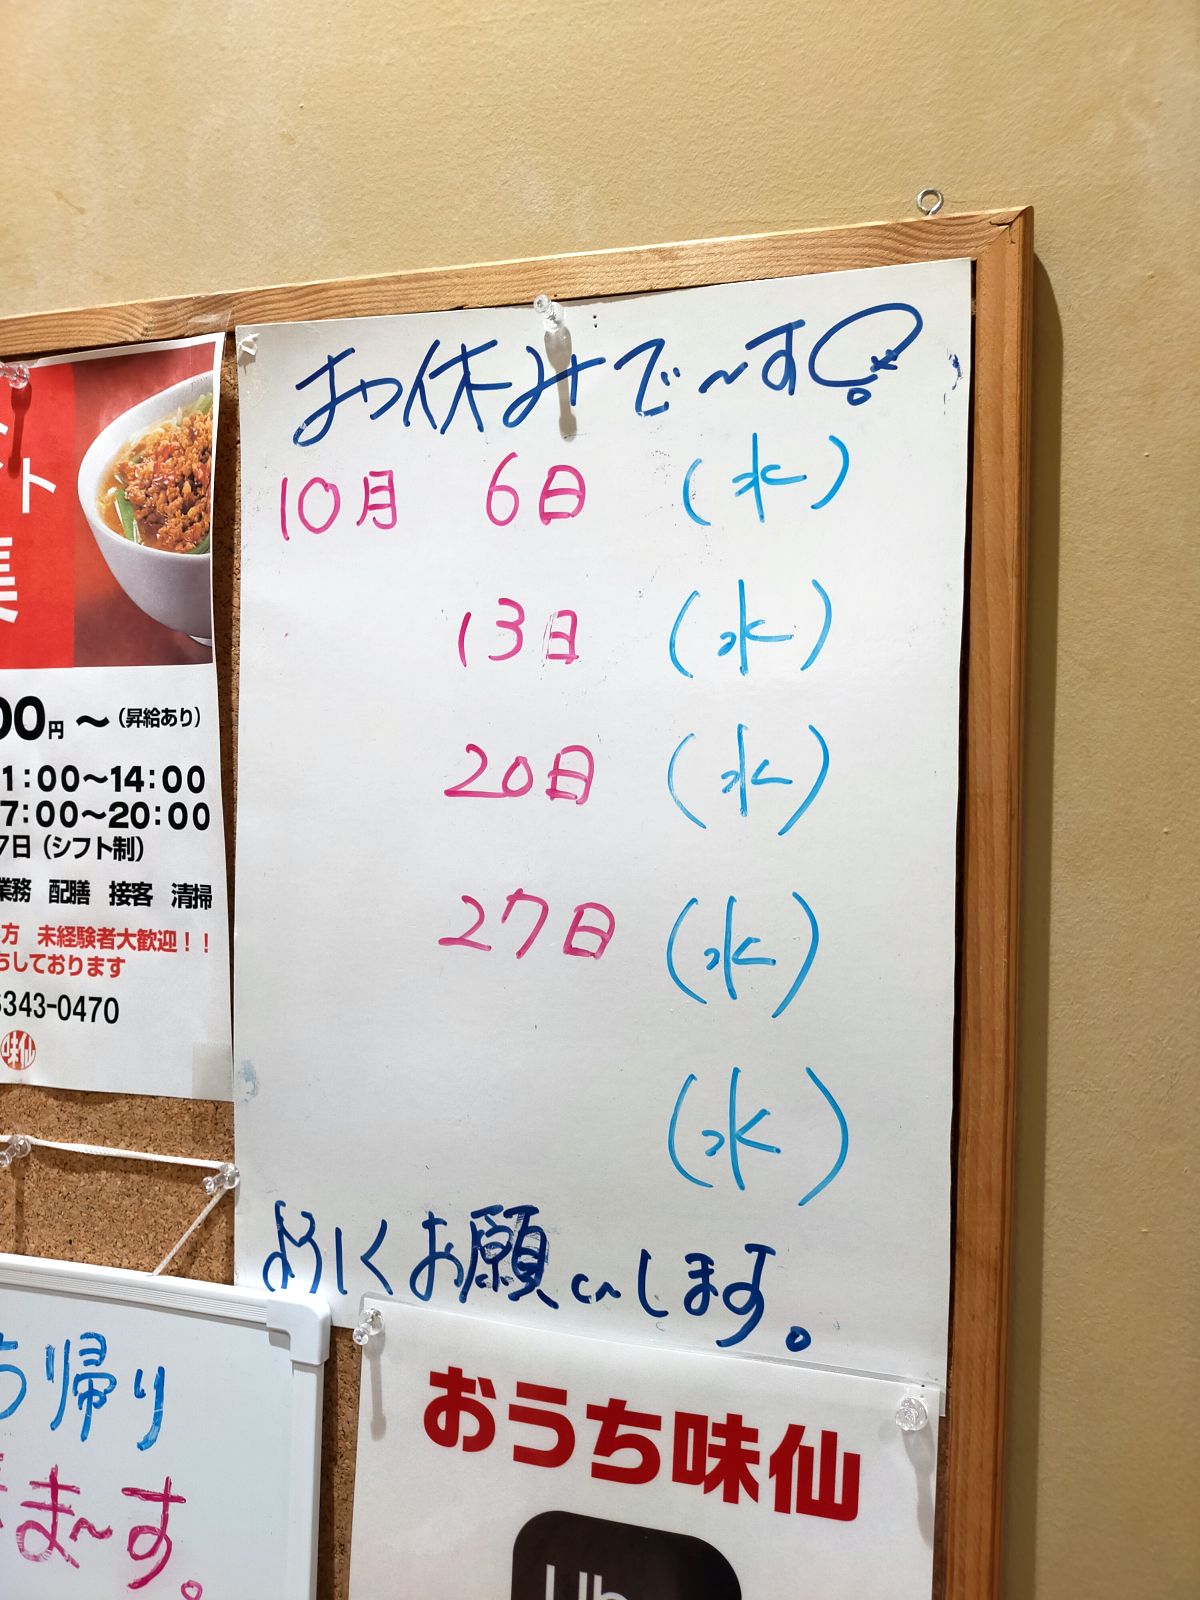 お休みで〜す。
10月 6日 (水)
13日 (水)
20日 (水)
27日 (水)
(水)
よろしくお願いします。
ト
集
00円〜(昇給あり)
1:00〜14:00
7:00〜20:00
7日(シフト制)
業務 配膳 接客 清掃
方 未経験者大歓迎!!
ちしております
6343-0470
味仙
ち帰り
ま〜す。
おうち味仙
Ub